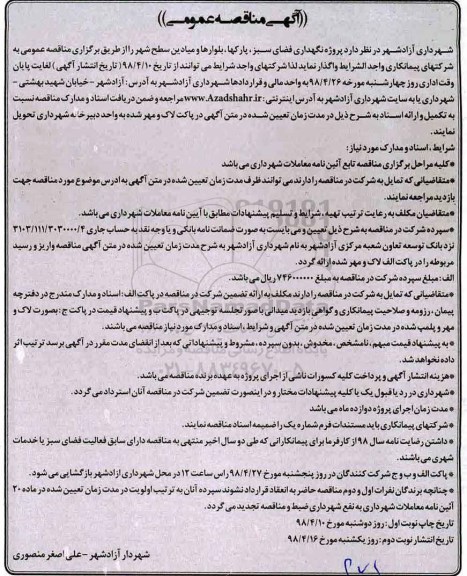 ((آگهی مناقصه عمومی))
شهرداری آزادشهر در نظر دارد پروژه نگهداری فضای سبز، پارکها، بلوارها و میادین سطح شهر را از طریق برگزاری مناقصه عمومی به
شرکتهای پیمانکاری واجد الشرایط واگذار نماید لذا شرکتهای واجد شرایط می توانند از تاریخ ۹۸/۴/۱۰( تاریخ انتشار آگهی) لغایت پایان
وقت اداری روز چهارشنبه مورخه ۹۸/۴/۲۶ به واحد مالی و قراردادها شهرداری آزادشهر به آدرس: آزادشهر -خیابان شهید بهشتی -
شهرداری یا به سایت شهرداری آزادشهر به آدرس اینترنتی :www.Azadshahr.ir مراجعه و ضمن دریافت اسناد و مدارک مناقصه نسبت
به تکمیل و ارائه اسناد به شرح ذیل در مدت زمان تعیین شده در متن آگهی در پاکت لاک و مهر شده به واحد دبیرخانه شهرداری تحویل
نمایند.
شرایط، اسناد و مدارک مورد نیاز:
*کلیه مراحل برگزاری مناقصه تابع آئین نامه معاملات شهرداری می باشد
*متقاضیانی که تمایل به شرکت در مناقصه را دارند می توانند ظرف مدت زمان تعیین شده در متن آگهی به آدرس موضوع مورد مناقصه جهت
بازدید مراجعه نمایند.
*متقاضیان مکلف به رعایت ترتیب تهیه، شرایط و تسلیم پیشنهادات مطابق با آیین نامه معاملات شهرداری می باشد.
*سپرده شرکت در مناقصه به شرح ذیل تعیین و می بایست به صورت ضمانت نامه بانکی و یا وجه نقد به حساب جاری ۳۱۰۳/۱۱۱/۳۰۳۰۰۰۰/۴
نزد بانک توسعه تعاون شعبه مرکزی آزادشهر به نام شهرداری آزادشهر به شرح مدت زمان تعیین شده در متن آگهی مناقصه واریز و رسید
مربوطه را در پاکت الف لاک و مهر شده ارائه گردد.
الف: مبلغ سپرده شرکت در مناقصه به مبلغ ۷۴۶۰۰۰۰۰۰ ریال می باشد.
*متقاضیانی که تمایل به شرکت در مناقصه را دارند مکلف به ارائه تضمین شرکت در مناقصه در پاکت الف: اسناد و مدارک مندرج در دفترچه
پیمان، رزومه و صلاحیت پیمانکاری و گواهی بازدید میدانی یا صور تجلسه توجیهی در پاکت ب و پیشنهاد قیمت در پاکت ج :بصورت لاک و
مهر و پلمپ شده در مدت زمان تعیین شده در متن آگهی و شرایط ،اسناد و مدارک مورد نیاز مناقصه می باشند.
* به پیشنهاد قیمت مبهم، نامشخص، مخدوش، بدون سپرده، مشروط و پیشنهاداتی که بعد از انقضای مدت مقرر در آگهی برسد ترتیب اثر
داده نخواهد شد.
*هزینه انتشار آگهی و پرداخت کلیه کسورات ناشی از اجرای پروژه به عهده برنده مناقصه می باشد.
*شهرداری در رد یا قبول یک یا کلیه پیشنهادات مختار و در اینصورت تضمین شرکت در مناقصه آنان استرداد می گردد.
* مدت زمان اجرای پروژه دوازده ماه می باشد
*شرکتهای پیمانکاری باید مستندات فرم شماره یک را ضمیمه اسناد مناقصه نمایند.
* داشتن رضایت نامه سال ۹۸ از کارفرما برای پیمانکارانی که طی دو سال اخیر منتهی به مناقصه دارای سابق فعالیت فضای سبز یا خدمات
شهری می باشند.
*پاکت الف و ب و ج شرکت کنندگان در روز پنجشنبه مورخ ۹۸/۴/۲۷ راس ساعت ۱۲ در محل شهرداری ازادشهر بازگشایی می شود.
* چنانچه برندگان نفرات اول و دوم مناقصه حاضر به انعقاد قرارداد نشوند سپرده آنان به ترتیب اولویت در مدت زمان تعیین شده در ماده ۲۰
آئین نامه معاملات شهرداری به نفع شهرداری ضبط و مناقصه تجدید می گردد.
تاریخ چاپ نوبت اول: روز دوشنبه مورخ ۹۸/۴/۱۰
تاریخ انتشار نوبت دوم: روز یکشنبه مورخ ۹۸/۴/۱۶
شهردار آزادشهر -علی اصغر منصوری